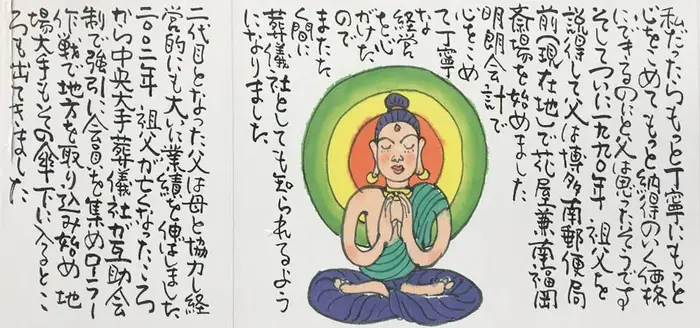 私だったらもっと丁寧にもっと
心をこめてもっと納得のいく価格
にできるのにと父は思ったそうです
そしてついに一九九〇年 祖父を
説得して父は博多南郵便局
前(現在地)で花屋兼南福岡
斎場を始めました
明朗会計で
心をこめ
て丁寧
な
経営
を心
がけた
ので
またた
く間に
葬儀社としても知られてるよう
になりました
二代目となった父は母と協力し経
営的にも大いに業績を伸ばしました
二〇〇二年 祖父が亡くなったころ
から中央大手葬儀社が互助会
制で強引に会員を集めローラー
作戦で地方を取り込み始め 地
場大手もその傘下に入るとこ
ろも出てきました